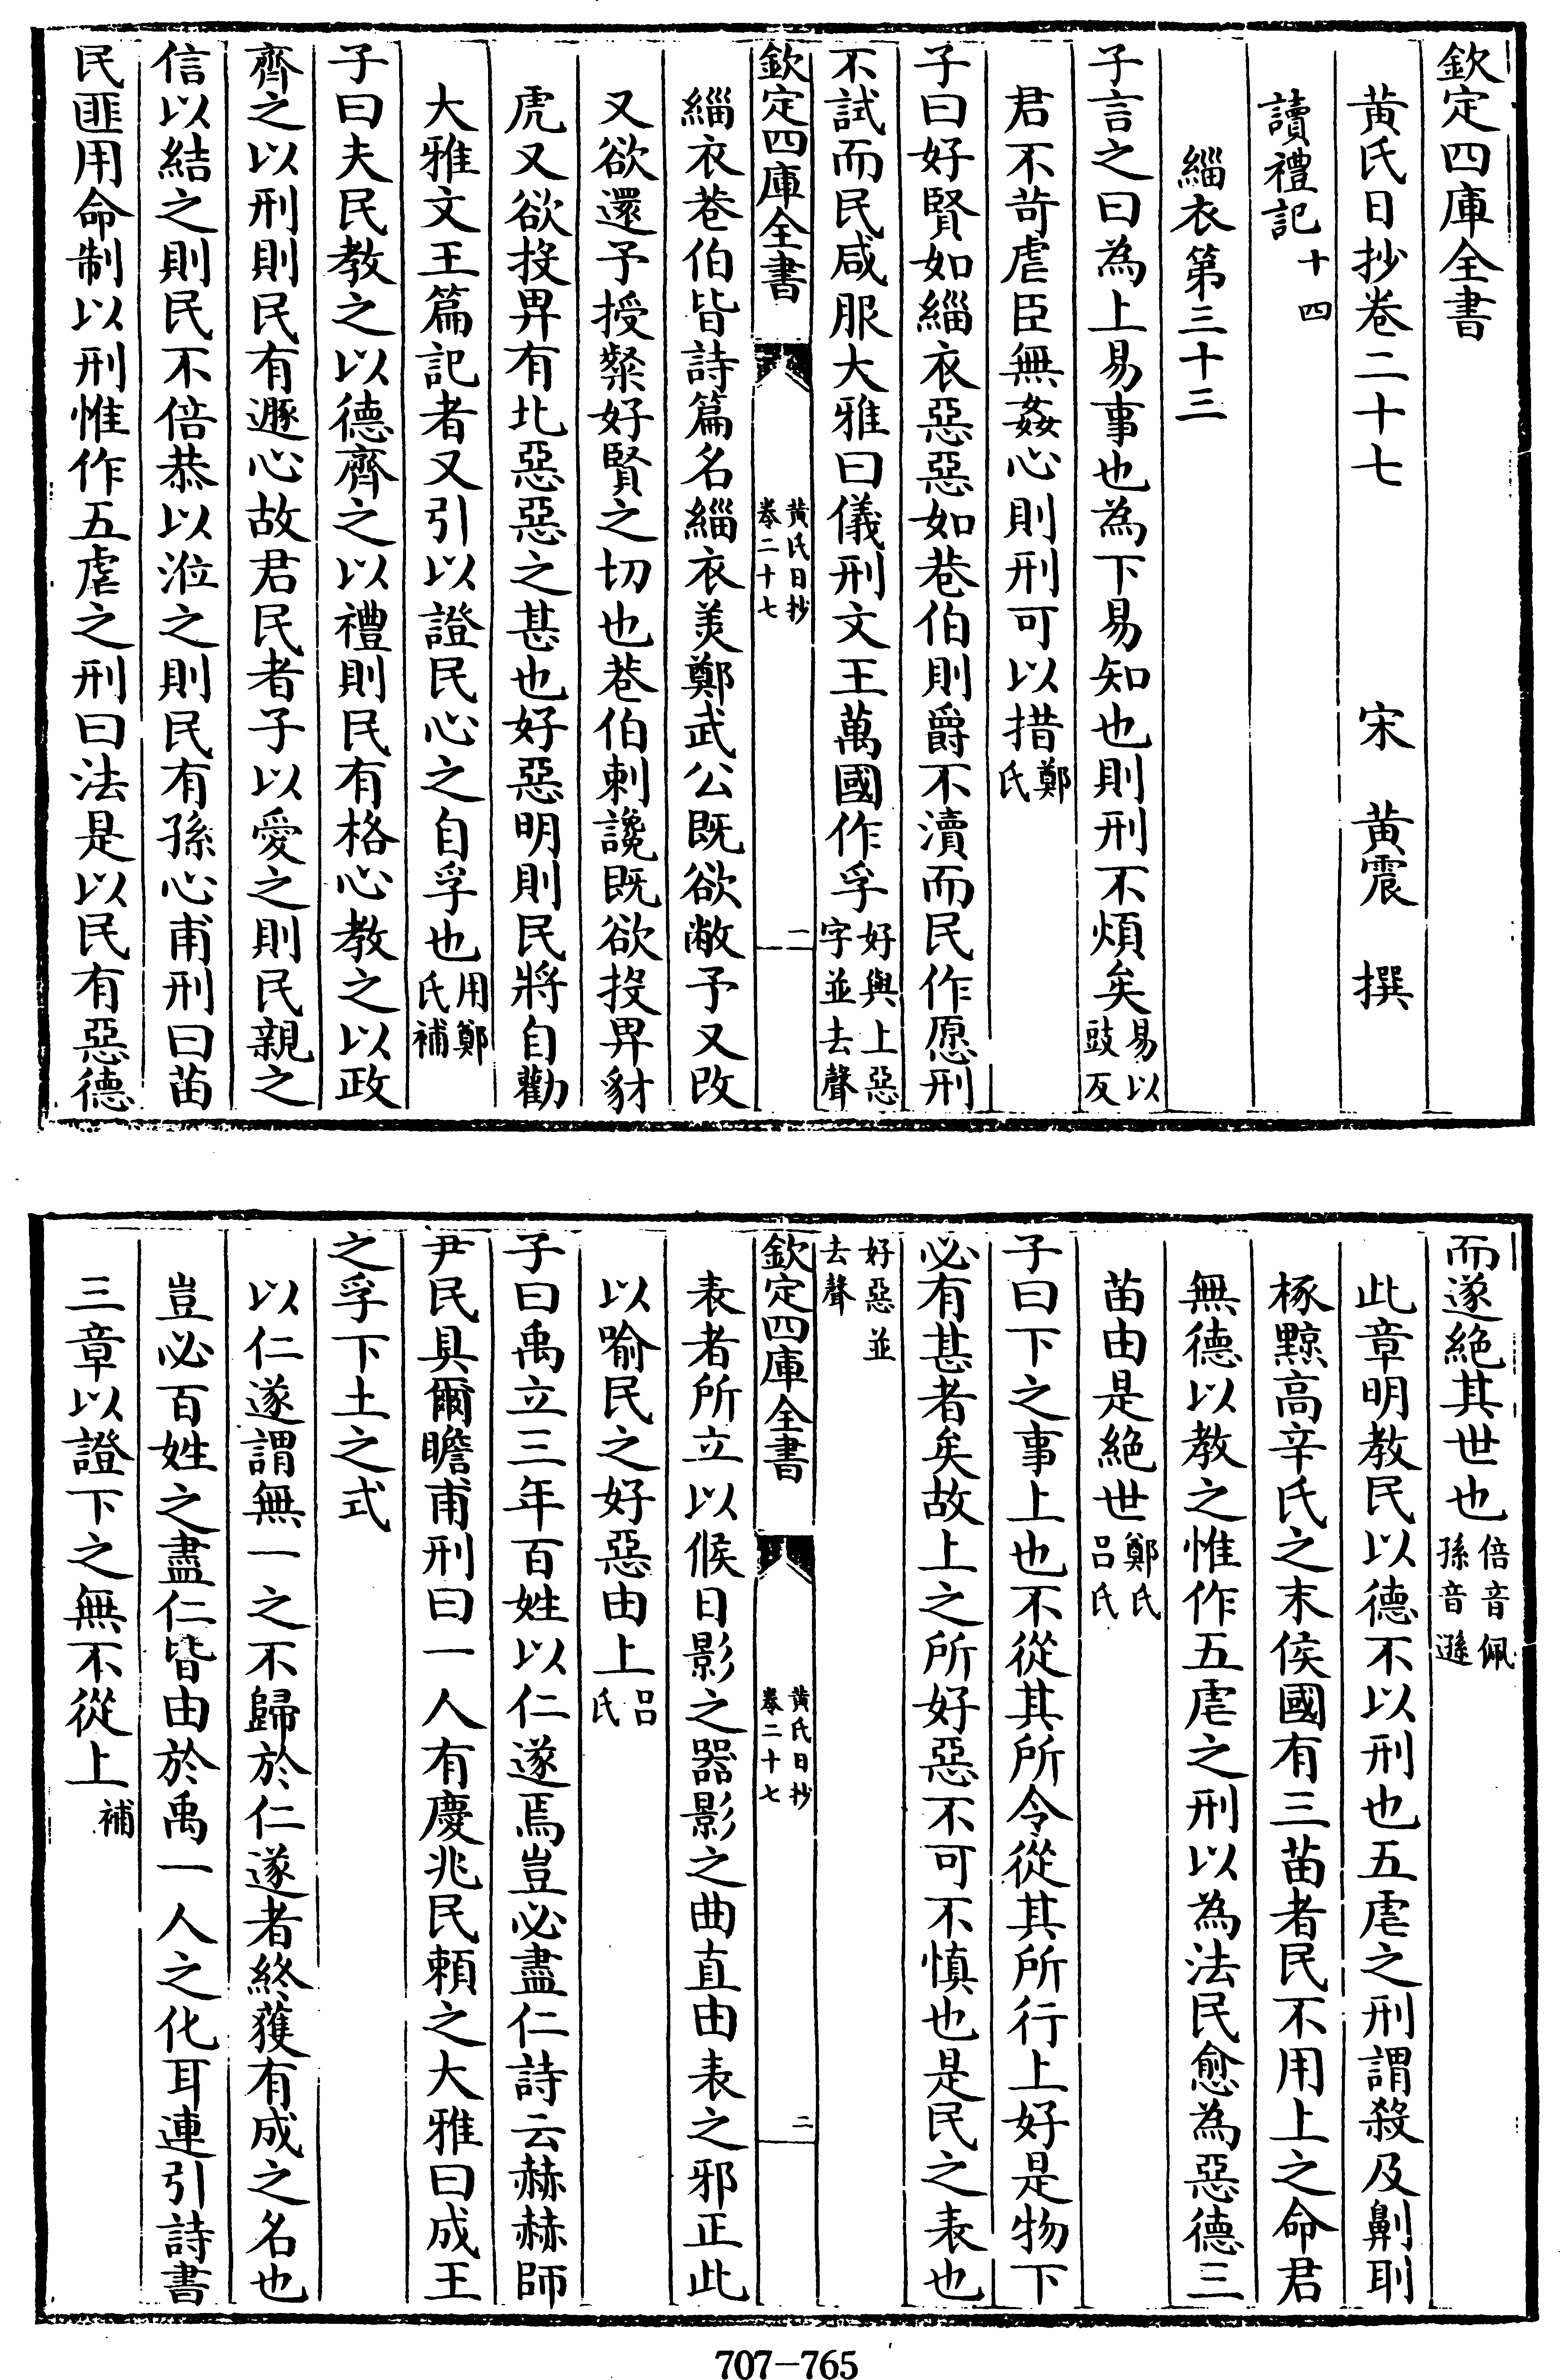 欽定四庫全書
黄氏日抄卷二十七 宋 黄震 撰
讀禮記十四
緇衣第三十三
子言之曰為上易事也為下易知也則刑不煩矣易以豉反
君不苛虐臣無姦心則刑可以措鄭氏
子曰好賢如緇衣惡惡如巷伯則爵不瀆而民作愿刑
不試而民咸服大雅曰儀刑文王萬國作孚好與上惡字並去聲
欽定四庫全書 黄氏日抄卷二十七 一
緇衣巷伯皆詩篇名緇衣羙鄭武公既欲敝予又改
又欲還予授粲好賢之切也巷伯刺讒既欲投畀豺
虎又欲投畀有北惡惡之甚也好惡明則民將自勸
大雅文王篇記者又引以證民心之自孚也用鄭氏補
子曰夫民教之以德齊之以禮則民有格心教之以政
齊之以刑則民有遯心故君民者子以愛之則民親之
信以結之則民不倍恭以涖之則民有孫心甫刑曰苗
民匪用命制以刑惟作五虐之刑曰法是以民有惡德
而遂絶其世也倍音佩孫音遜
此章明教民以德不以刑也五虐之刑謂殺及劓刵
椓黥高辛氏之末侯國有三苗者民不用上之命君
無德以教之惟作五虐之刑以為法民愈為惡德三
苗由是絶世鄭氏吕氏
子曰下之事上也不從其所令從其所行上好是物下
必有甚者矣故上之所好惡不可不慎也是民之表也
好惡並去聲
欽定四庫全書 黄氏日抄卷二十七 二
表者所立以候日影之器影之曲直由表之邪正此
以喻民之好惡由上吕氏
子曰禹立三年百姓以仁遂焉豈必盡仁詩云赫赫師
尹民具爾瞻甫刑曰一人有慶兆民賴之大雅曰成王
之孚下土之式
以仁遂謂無一之不歸於仁遂者終獲有成之名也
豈必百姓之盡仁皆由於禹一人之化耳連引詩書
三章以證下之無不從上補
707-765